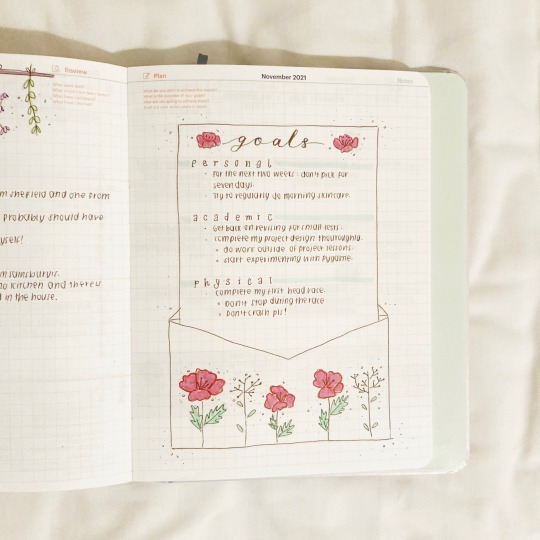 Review
Plan
November 2021
Notes
goals
personal
for the next two weeks: don't pick for
seven days.
Try to regularly do morning skincare.
academic
Get back on revising for small tests.
complete my project design thouroughly.
do work outside of project lessons.
start experimenting with pygame.
physical
complete my first head race.
Don't stop during the race
Don't crash pls!
m shefield and one from
probably should have
yself!
m sainsburys.
no kitchen and there's
d in the house.